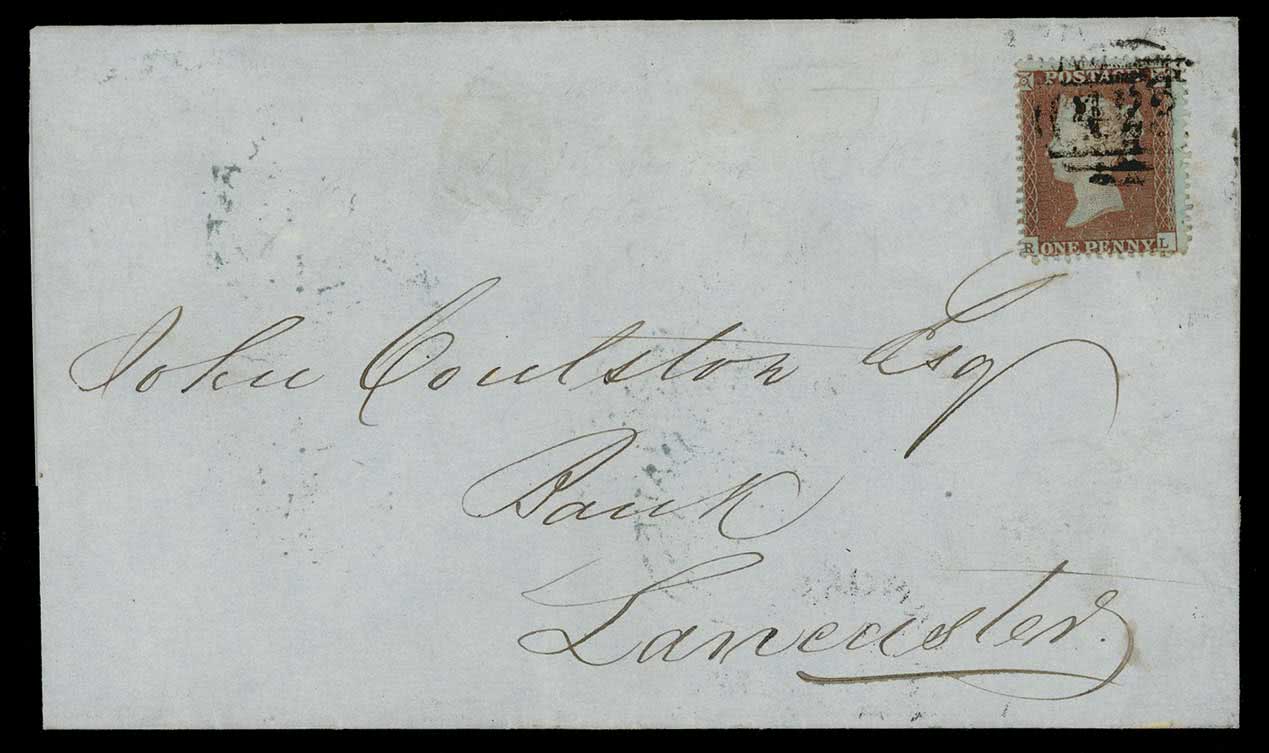 POSTAGE
R ONE PENNY L
John Coulston Esq
Bank
Lancaster